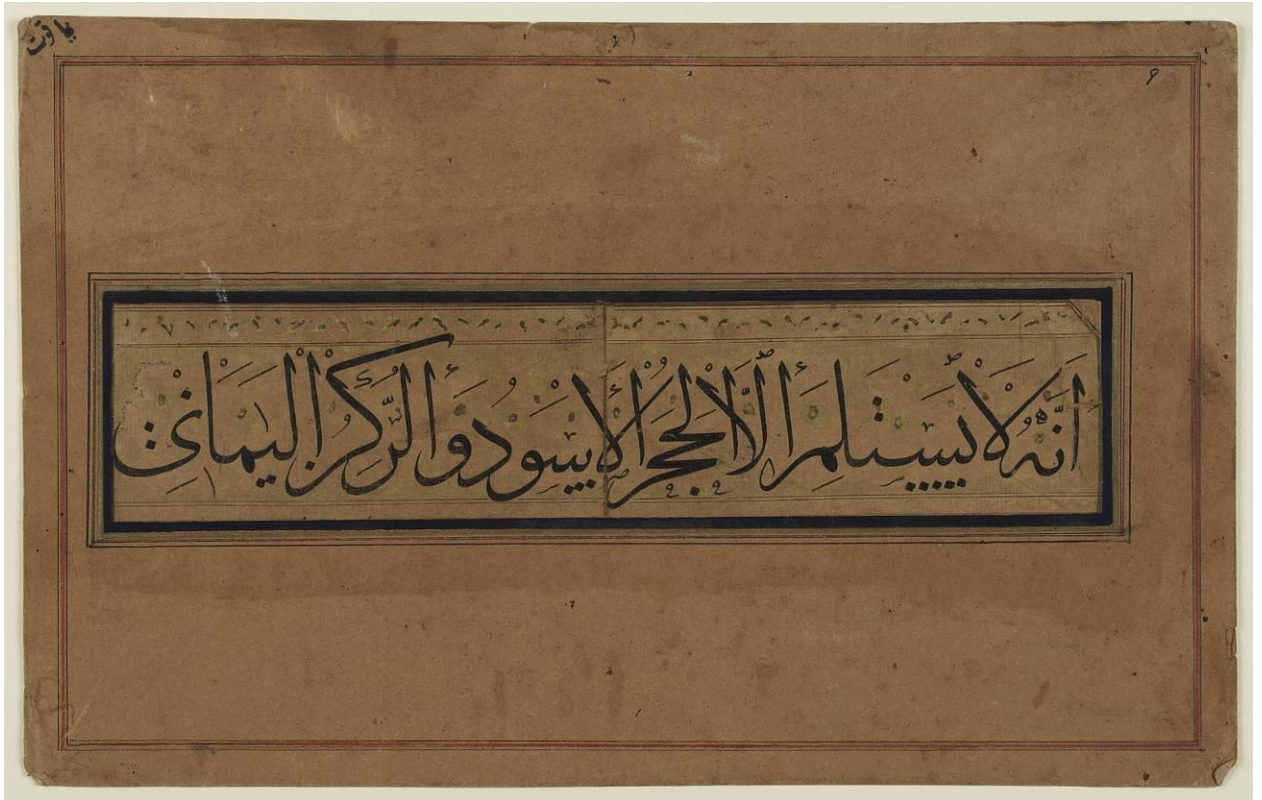 ياقوت
٩
اَنَّهُ لَا يَسْتَلِمُ اِلَّا الْحَجَرَ الْأَسْوَدَ وَالرُّكْنَ الْيَمَانِيَ